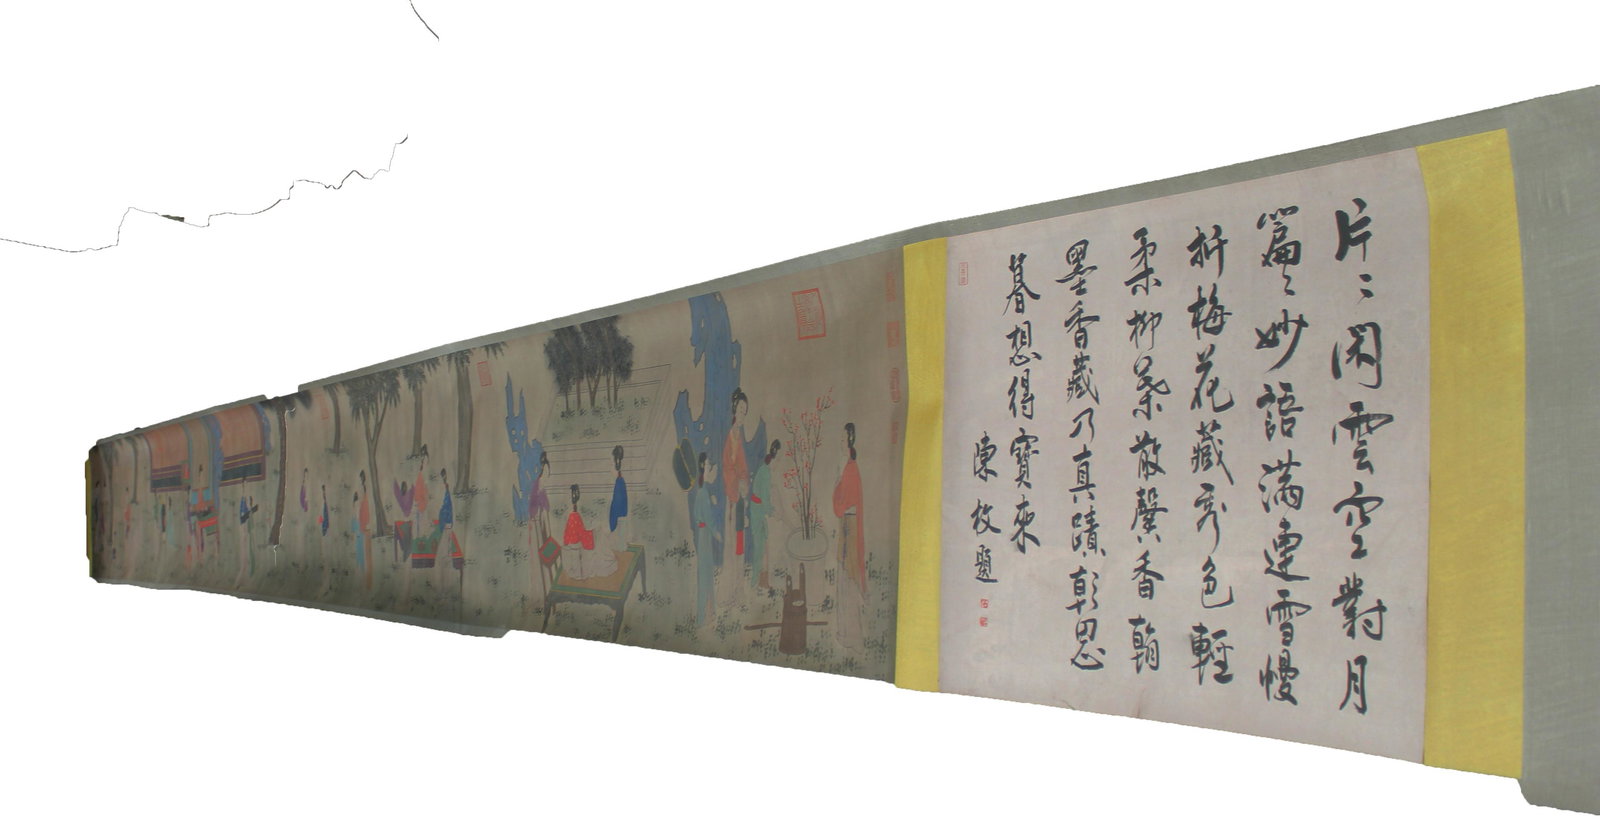 片〻閑雲空對月
篇〻妙語滿連雪慢
折梅花藏秀色輕
柔柳葉散馨香翰
墨香藏乃真蹟朝思
暮想得寶來
陳枚題